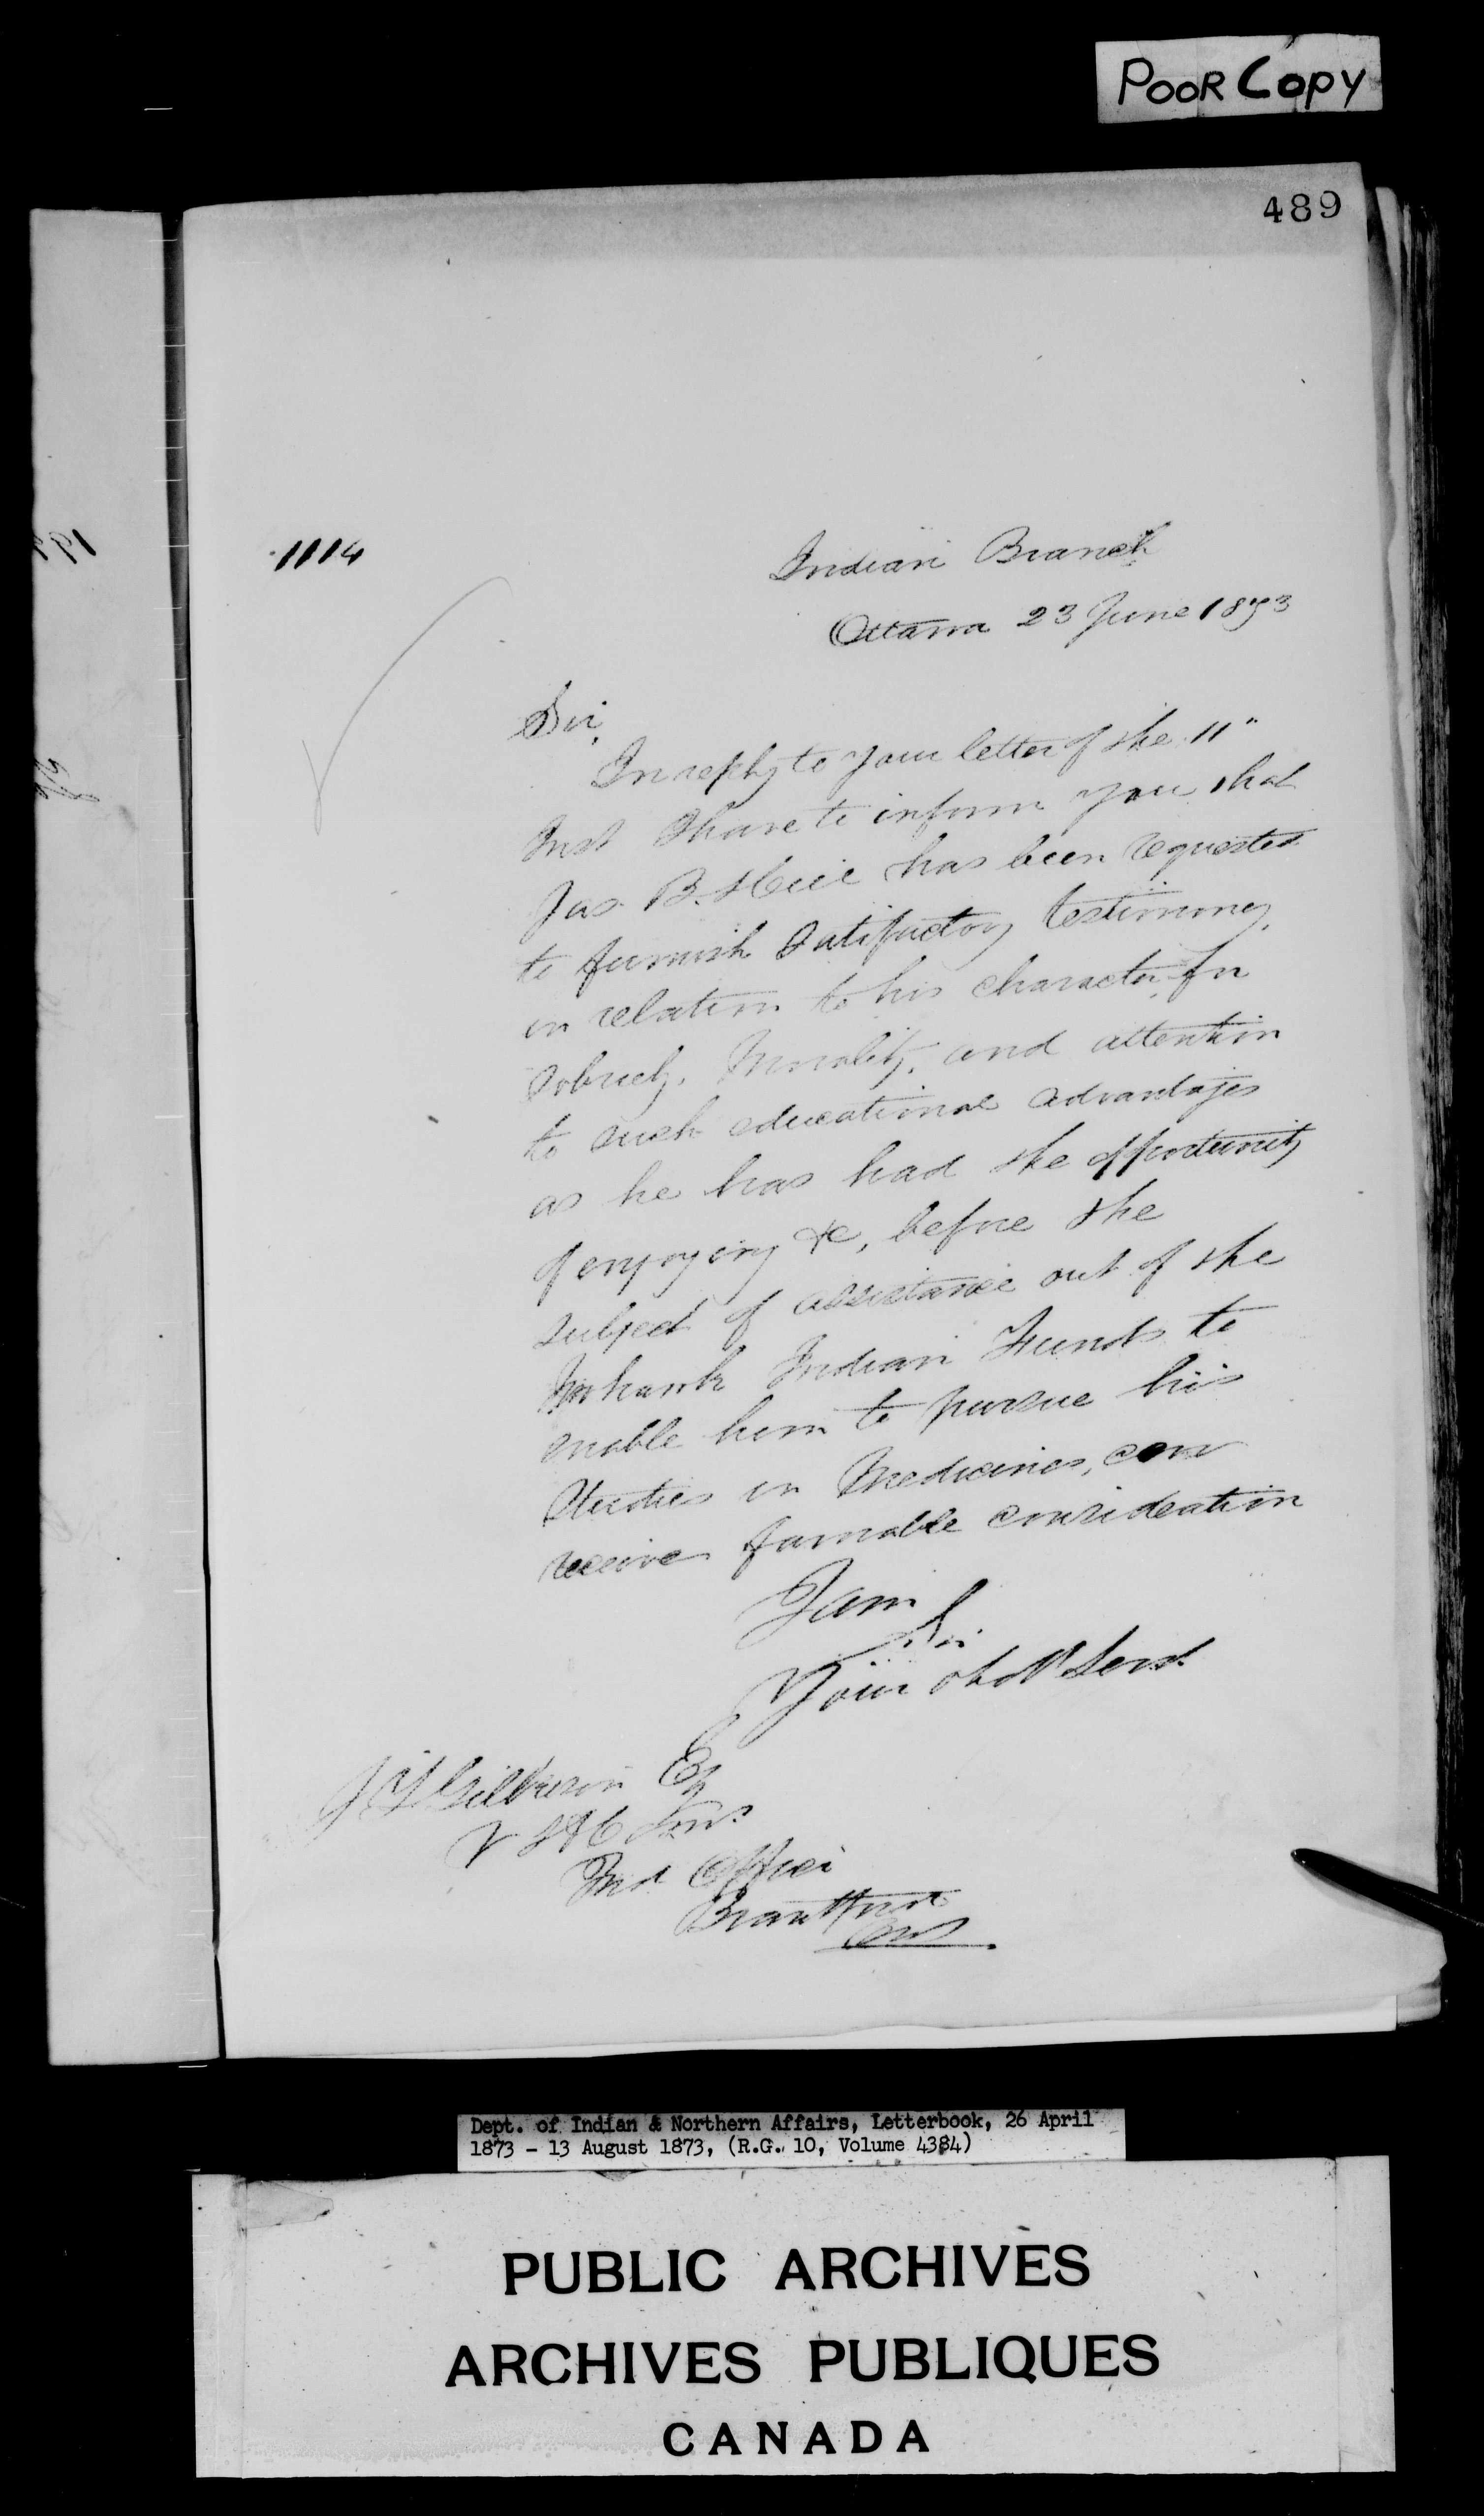 POOR COPY
489
1114
Indian Branch
Ottawa 23 June 1873
Sir,
In reply to your letter of the 11"
Inst I have to inform you that
Jas. B. has been requested
to furnish Satisfactory testimony
in relation to his character for
Sobriety, Morality, and attention
to such educational advantages
as he has had the opportunity
of enjoying &c, before the
subject of assistance out of the
Mohawk Indian Funds to
enable him to pursue his
Studies in Medicines, can
receive favorable consideration
I am
Sir
Your obdt Servt
J T Gilkison Esq
V S &c Ind
Ind Office
Brantford
Ont
Dept. of Indian & Northern Affairs, Letterbook, 26 April
1873 - 13 August 1873, (R.G. 10, Volume 4384)
PUBLIC ARCHIVES
ARCHIVES PUBLIQUES
CANADA